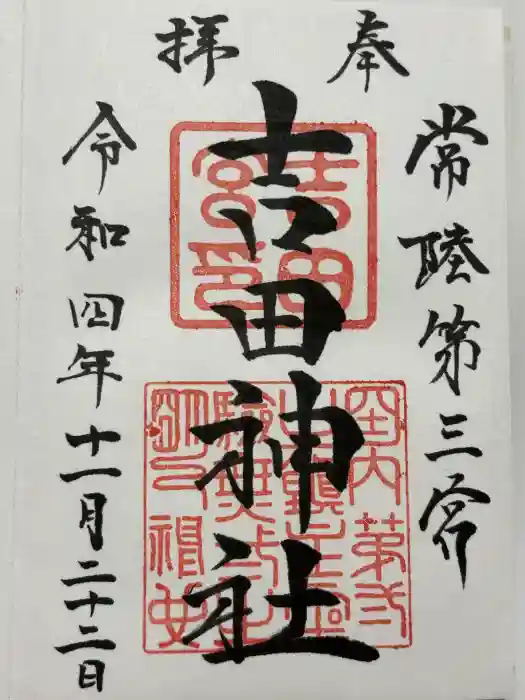 奉拝
常陸第三宮
吉田神社
令和四年十一月二十二日